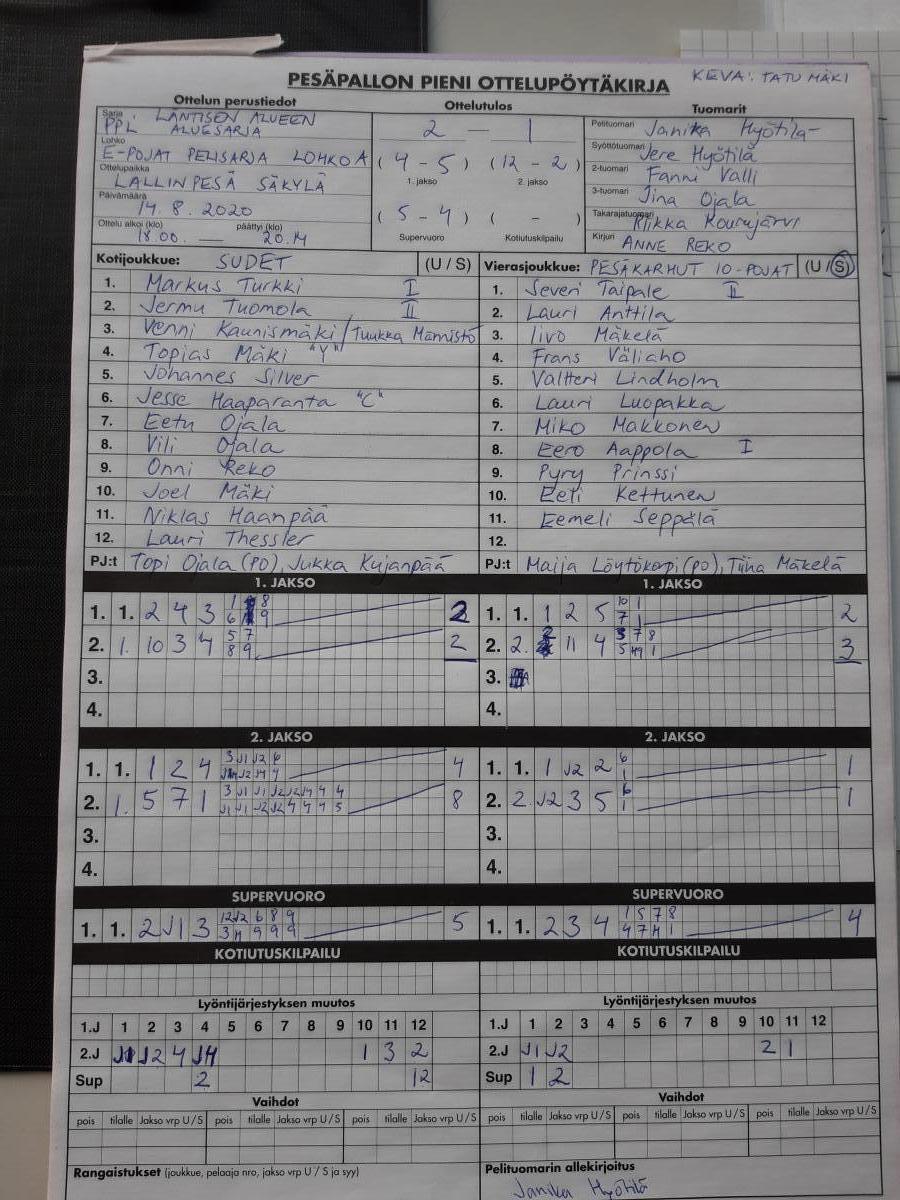 KEVA: TATU MÄKI
PESÄPALLON PIENI OTTELUPÖYTÄKIRJA
Ottelun perustiedot
Sarja LÄNTISEN ALUEEN
PPL ALUESARJA
Lohko
E-POJAT PELISARJA LOHKO A
Ottelupaikka
LALLINPESÄ SÄKYLÄ
Päivämäärä
14.8.2020
Ottelu alkoi (klo) päättyi (klo)
18.00 — 20.14
Ottelutulos
2 — 1
(4 - 5) (12 - 2)
1. jakso 2. jakso
(5 - 4) ( - )
Supervuoro Kotiutuskilpailu
Tuomarit
Pelituomari Janika Hyötilä
Syöttötuomari Jere Hyötilä
2-tuomari Fanni Valli
3-tuomari Jina Ojala
Takarajatuomari Riikka Kourujärvi
Kirjuri ANNE REKO
Kotijoukkue: SUDET (U / S)
1. Markus Turkki I
2. Jermu Tuomola II
3. Venni Kaunismäki / Tuukka Mämistö
4. Topias Mäki "Y"
5. Johannes Silver
6. Jesse Haaparanta "C"
7. Eetu Ojala
8. Vili Ojala
9. Onni Reko
10. Joel Mäki
11. Niklas Haanpää
12. Lauri Thessler
PJ:t Topi Ojala (PO), Jukka Kujanpää
Vierasjoukkue: PESÄKARHUT 10-POJAT (U / S)
1. Severi Taipale II
2. Lauri Anttila
3. Iivo Mäkelä
4. Frans Väliaho
5. Valtteri Lindholm
6. Lauri Luopakka
7. Miko Makkonen
8. Eero Aappola I
9. Pyry Prinssi
10. Eeti Kettunen
11. Eemeli Seppälä
12.
PJ:t Maija Löytökorpi (PO), Tiina Mäkelä
1. JAKSO
1. 1. 2 4 3 2
2. 1. 10 3 4 5 7 8 9 2
3.
4.
1. JAKSO
1. 1. 1 2 5 2
2. 2. 2 11 4 3
3.
4.
2. JAKSO
1. 1. 1 2 4 3 J1 J2 6 4
2. 1. 5 7 1 8
3.
4.
2. JAKSO
1. 1. 1 J2 2 6 1 1
2. 2. J2 3 5 6 1 1
3.
4.
SUPERVUORO
1. 1. 2 J1 3 12 J2 6 8 9 5
SUPERVUORO
1. 1. 2 3 4 1 5 7 8 4
KOTIUTUSKILPAILU
KOTIUTUSKILPAILU
Lyöntijärjestyksen muutos
1.J 1 2 3 4 5 6 7 8 9 10 11 12
2.J J1 J2 4 J4 1 3 2
Sup 2 12
Lyöntijärjestyksen muutos
1.J 1 2 3 4 5 6 7 8 9 10 11 12
2.J J1 J2 2 1
Sup 1 2
Vaihdot
pois tilalle Jakso vrp U / S pois tilalle Jakso vrp U / S pois tilalle Jakso vrp U / S
Vaihdot
pois tilalle Jakso vrp U / S pois tilalle Jakso vrp U / S pois tilalle Jakso vrp U / S
Rangaistukset (joukkue, pelaaja nro, jakso vrp U / S ja syy)
Pelituomarin allekirjoitus
Janika Hyötilä